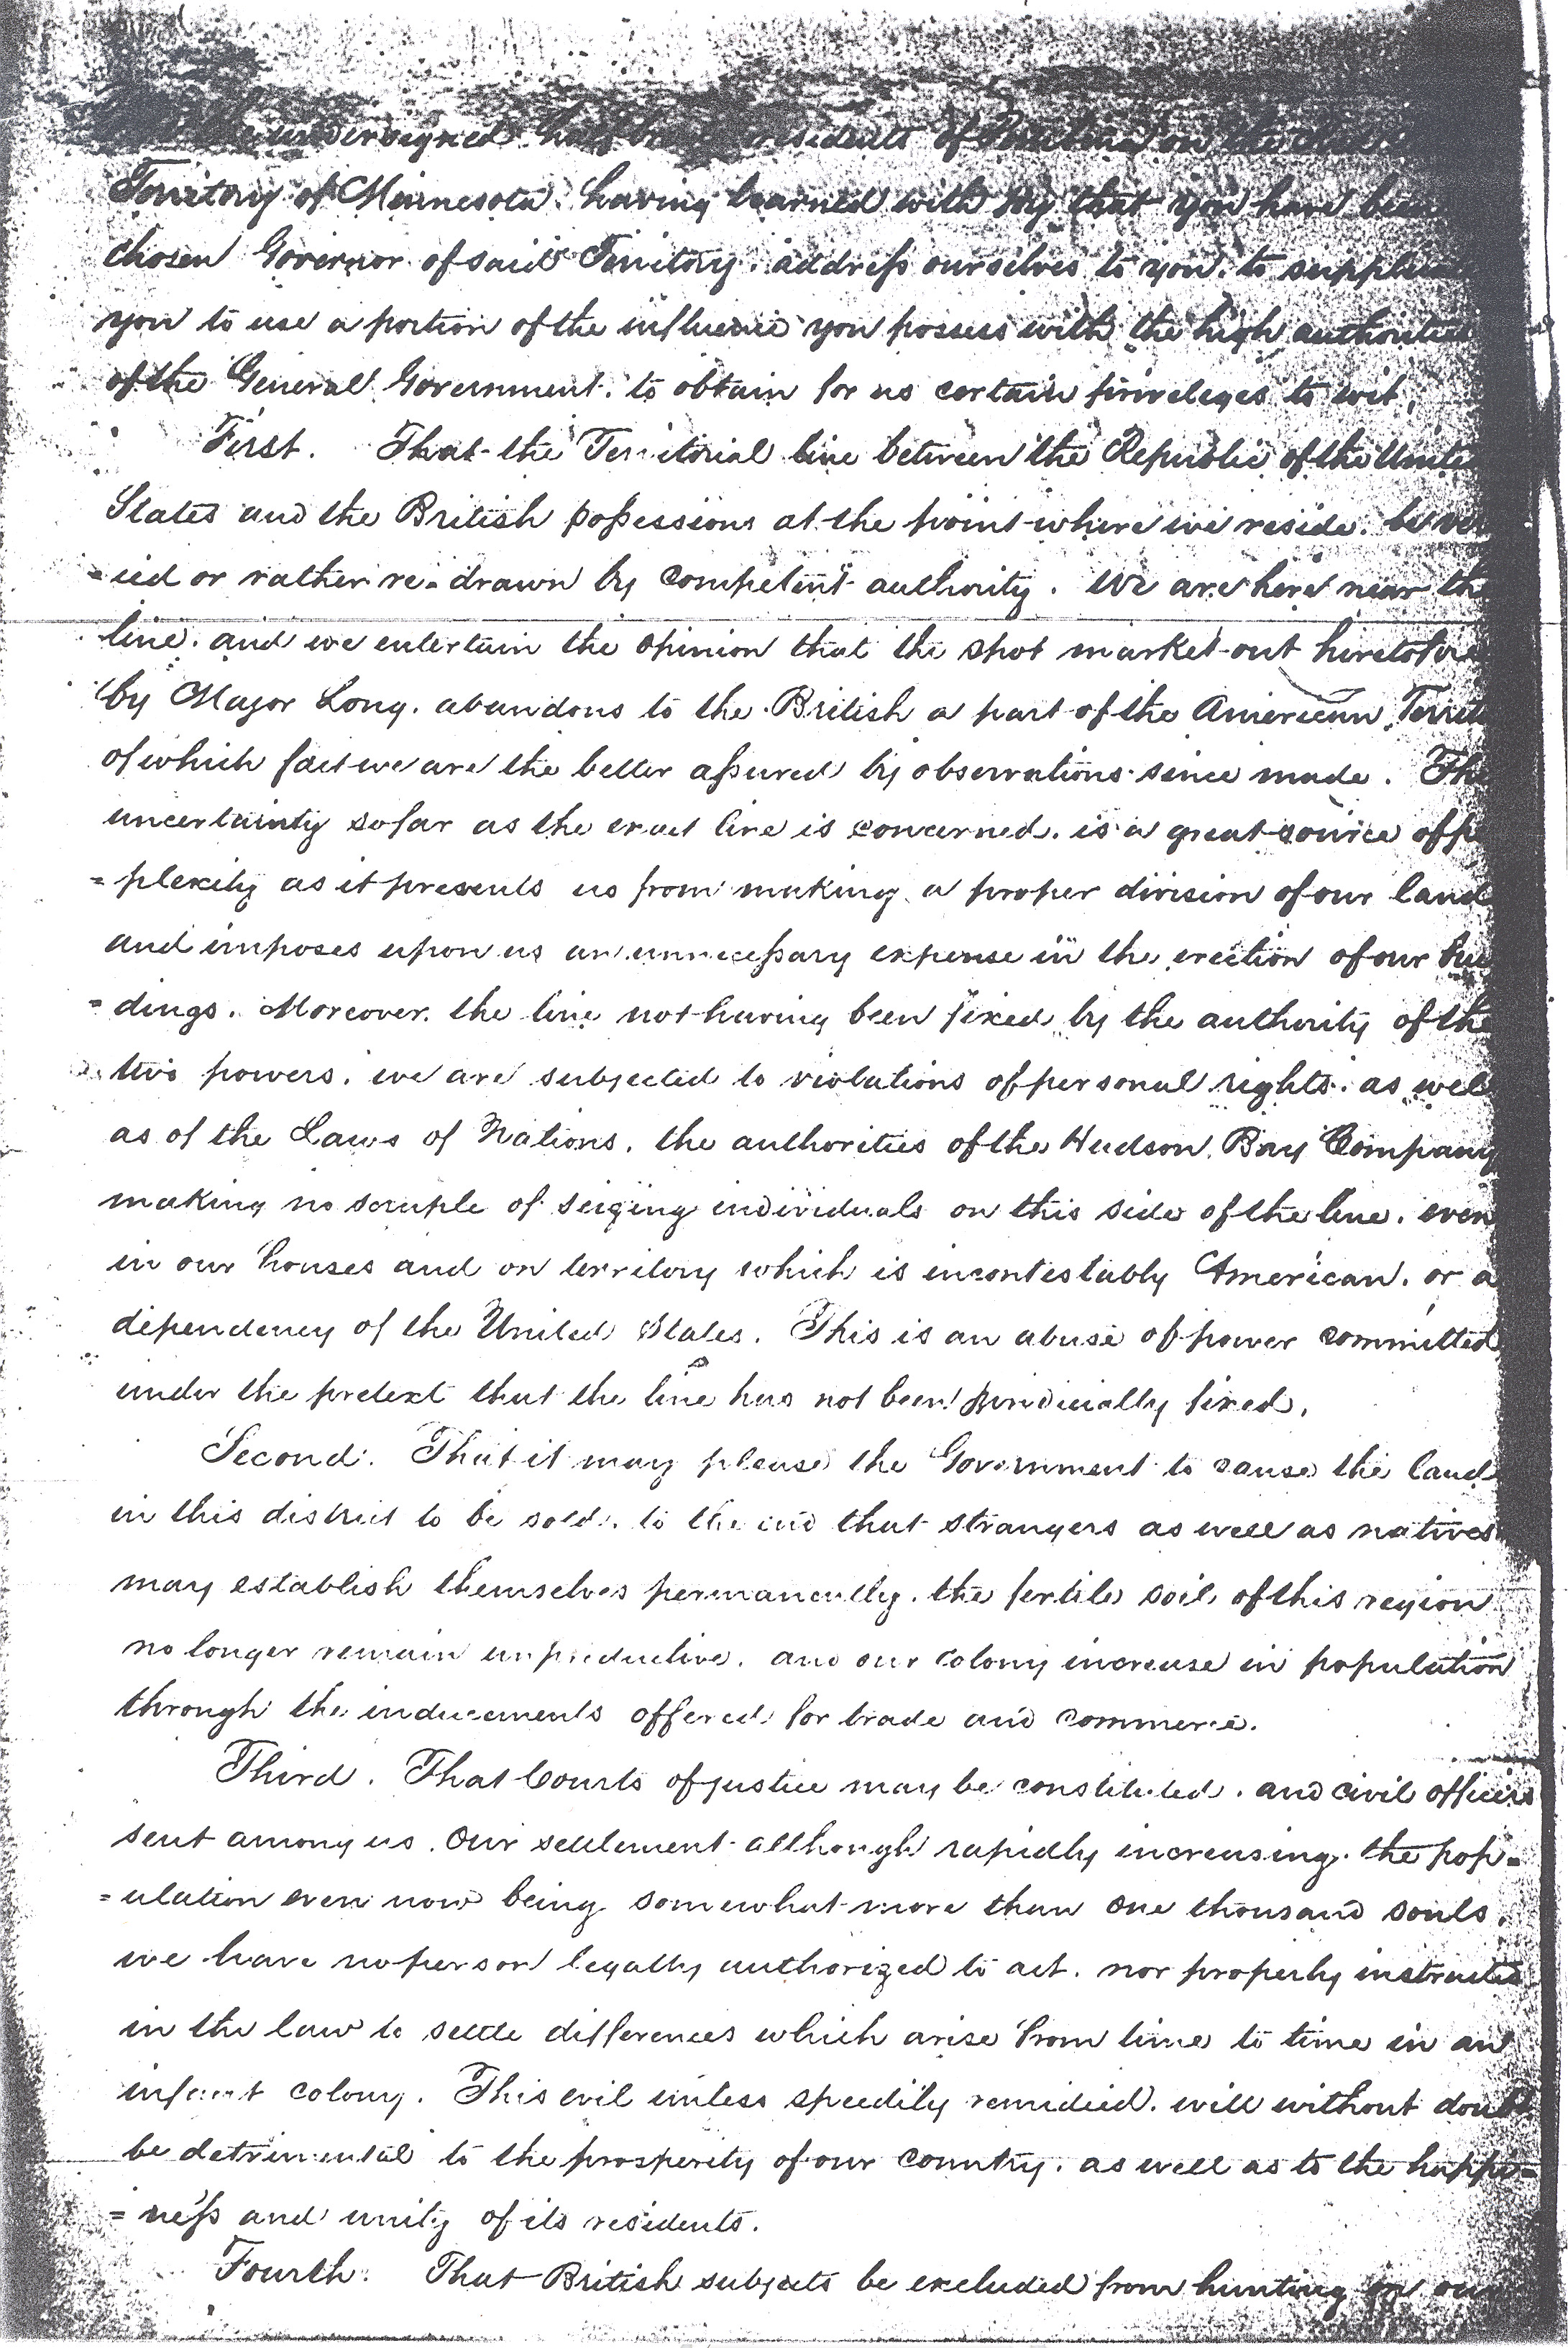 undersigned half residents of Pembina on the
Territory of Minnesota. having learned with joy that you have been
chosen Governor of said Territory. address ourselves to you. to
you to use a portion of the influence you possess with the high authorities
of the General Government. to obtain for us certain priveleges to wit.
First. That the Territorial line between the Republic of the Unite
States and the British possessions at the point where we reside. be
=ied or rather re-drawn by competent authority. We are here near the
line. and we entertain the opinion that the spot market out heretofore
by Major Long. abandons to the British a part of the American Territ
of which fact we are the better assured by observations since made. The
uncertainty so far as the exact line is concerned. is a great source of pe
=plexity as it presents us from making a proper division of our land
and imposes upon us an unnecessary expense in the erection of our bui
=dings. Moreover. the line not having been fixed by the authority of the
two powers. we are subjected to violations of personal rights. as well
as of the Laws of Nations. the authorities of the Hudson Bay Company
making no scruple of seizing individuals on this side of the line. even
in our houses and on territory which is incontestably American. or a
dependency of the United States. This is an abuse of power committed
under the pretext that the line has not been juridicially fixed.
Second. That it may please the Government to cause the land
in this district to be sold. to the end that strangers as well as natives
may establish themselves permanently. the fertile soil of this region
no longer remain unproductive. and our colony increase in population
through the inducements offered for trade and commerce.
Third. That Courts of justice may be constituted. and civil officers
sent among us. Our settlement although rapidly increasing. the pop=
=ulation even now being somewhat more than one thousand souls.
we have no person legally authorized to act. nor properly instructed
in the law to settle differences which arise from time to time in an
infant colony. This evil unless speedily remidied. will without doubt
be detrimental to the prosperity of our country. as well as to the happi=
=ness and unity of its residents.
Fourth. That British subjects be excluded from hunting on our